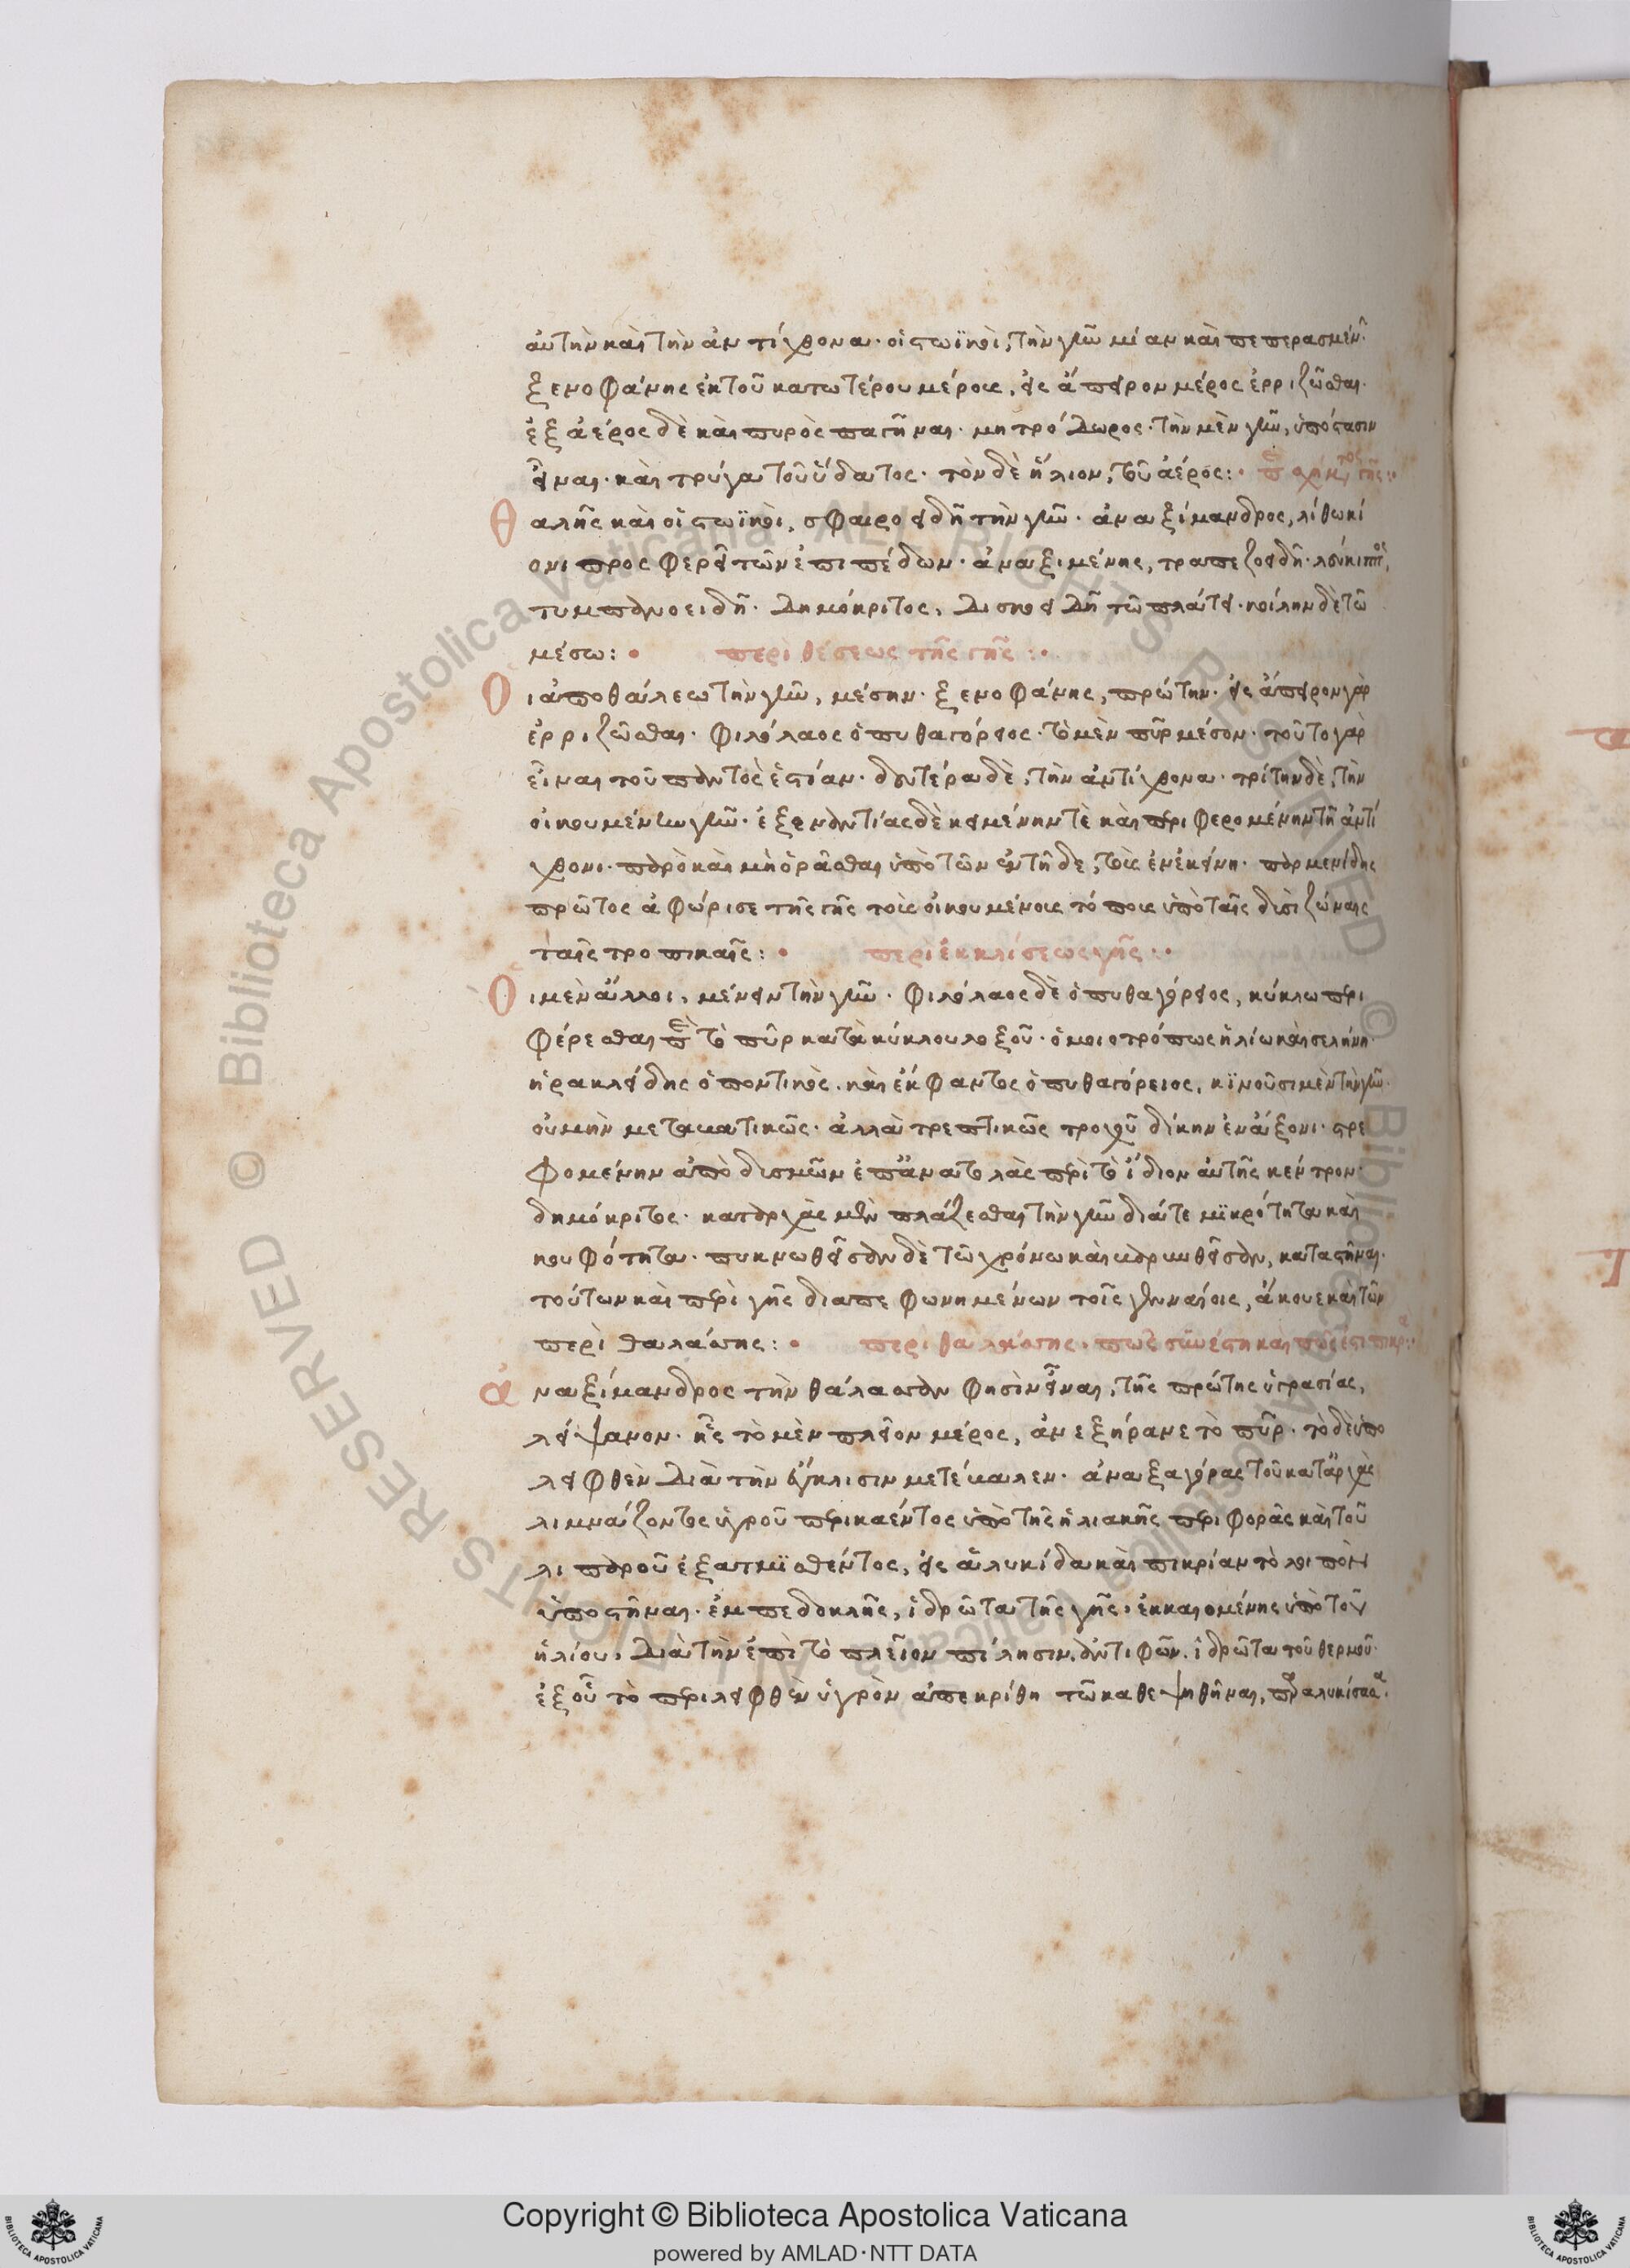 αὐτὴν καὶ τὴν ἀντίχθονα· οἱ στωϊκοὶ, τὴν γῆν μίαν καὶ πεπερασμένην·
ξενοφάνης ἐκ τοῦ κατωτέρου μέρους, εἰς ἄπειρον μέρος ἐρριζῶσθαι·
ἐξ ἀέρος δὲ καὶ πυρὸς παγῆναι· μητρόδωρος· τὴν μὲν γῆν, ὑπόστασιν
εἶναι· καὶ τρύγα τοῦ ὕδατος· τὸν δὲ ἥλιον, τοῦ ἀέρος: περὶ σχήματος γῆς:
Θαλῆς καὶ οἱ στωϊκοὶ, σφαιροειδῆ τὴν γῆν· ἀναξίμανδρος, λίθω κί
ονι προσφερεῖ τῶν ἐπιπέδων· ἀναξιμένης, τραπεζοειδῆ· λεύκιππος,
τυμπανοειδῆ· δημόκριτος, δισκοειδῆ τῶ πλάτει· κοίλην δὲ τῶ
μέσω: περὶ θέσεως τῆς γῆς:
Οἱ ἀπὸ θάλεω τὴν γῆν, μέσην· ξενοφάνης, πρώτην· εἰς ἄπειρον γὰρ
ἐρριζῶσθαι· φιλόλαος ὁ πυθαγόρειος· τὸ μὲν πῦρ μέσον· τοῦτο γὰρ
εἶναι τοῦ παντὸς ἑστίαν· δευτέραν δὲ, τὴν ἀντίχθονα· τρίτην δὲ, τὴν
οἰκουμένην γῆν· ἐξ ἐναντίας δὲ κειμένην τὲ καὶ περιφερομένην τῆ ἀντί
χθονι· παρὸ καὶ μὴ ὁρᾶσθαι ὑπὸ τῶν ἐν τῆδε, τοὺς ἐν ἐκείνη· παρμενίδης
πρῶτος ἀφώρισε τῆς γῆς τοὺς οἰκουμένους τόπους ὑπὸ ταῖς δυσὶ ζώναις
ταῖς τροπικαῖς: περὶ ἐκκλίσεως γῆς:
Οἱ μὲν ἄλλοι, μένειν τὴν γῆν· φιλόλαος δὲ ὁ πυθαγόρειος, κύκλω περι
φέρεσθαι περὶ τὸ πῦρ κατὰ κύκλου λοξοῦ· ὁμοιοτρόπως ἡλίω καὶ σελήνη·
ἡρακλείδης ὁ ποντικὸς, καὶ ἔκφαντος ὁ πυθαγόρειος, κινοῦσι μὲν τὴν γῆν·
οὐ μὴν μεταβατικῶς· ἀλλὰ τρεπτικῶς τροχοῦ δίκην ἐν ἄξονι· στρε
φομένην ἀπὸ δυσμῶν ἐπ' ἀνατολὰς περὶ τὸ ἴδιον αὐτῆς κέντρον·
δημόκριτος· κατ' ἀρχὰς μὲν πλάζεσθαι τὴν γῆν διά τε μικρότητα καὶ
κουφότητα· πυκνωθεῖσαν δὲ τῶ χρόνω καὶ βαρυνθεῖσαν, καταστῆναι·
τούτων καὶ περὶ γῆς διαπεφωνημένων τοῖς γενναίοις, ἄκουε καὶ τῶν
περὶ θαλάσσης: περὶ θαλάσσης· πῶς συνέστη καὶ πῶς ἐστι πικρά:
Ἀναξίμανδρος τὴν θάλασσαν φησὶν εἶναι, τῆς πρώτης ὑγρασίας,
λείψανον· ἧς τὸ μὲν πλεῖον μέρος, ἀνεξήρανε τὸ πῦρ· τὸ δὲ ὑπο
λειφθὲν διὰ τὴν ἔκκλισιν μετέβαλεν· ἀναξαγόρας τοῦ κατ' ἀρχὰς
λιμνάζοντος ὑγροῦ περικαέντος ὑπὸ τῆς ἡλιακῆς περιφορᾶς καὶ τοῦ
λιπαροῦ ἐξατμισθέντος, εἰς ἁλυκίδα καὶ πικρίαν τὸ λοιπὸν
ὑποστῆναι· ἐμπεδοκλῆς, ἱδρῶτα τῆς γῆς, ἐκκαιομένης ὑπὸ τοῦ
ἡλίου, διὰ τὴν ἐπὶ τὸ πλεῖον πίλησιν, ἀντιφῶν, ἱδρῶτα τοῦ θερμοῦ·
ἐξ οὗ τὸ περιλειφθὲν ὑγρὸν ἀπεκρίθη τῶ καθεψηθῆναι,